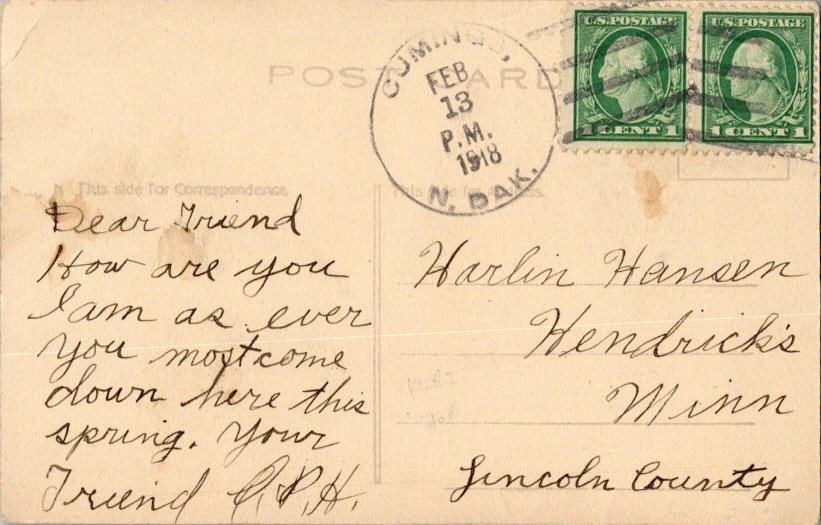 U.S. POSTAGE
U.S. POSTAGE
1 CENT 1
1 CENT 1
CUMINGS,
FEB
13
P.M.
1918
N. DAK.
POST CARD
This side for Correspondence
This side for
Dear Friend
How are you
I am as ever
you most come
down here this
spring. Your
Friend C.P.H.
Harlin Hansen
Hendrick's
Minn
Lincoln County